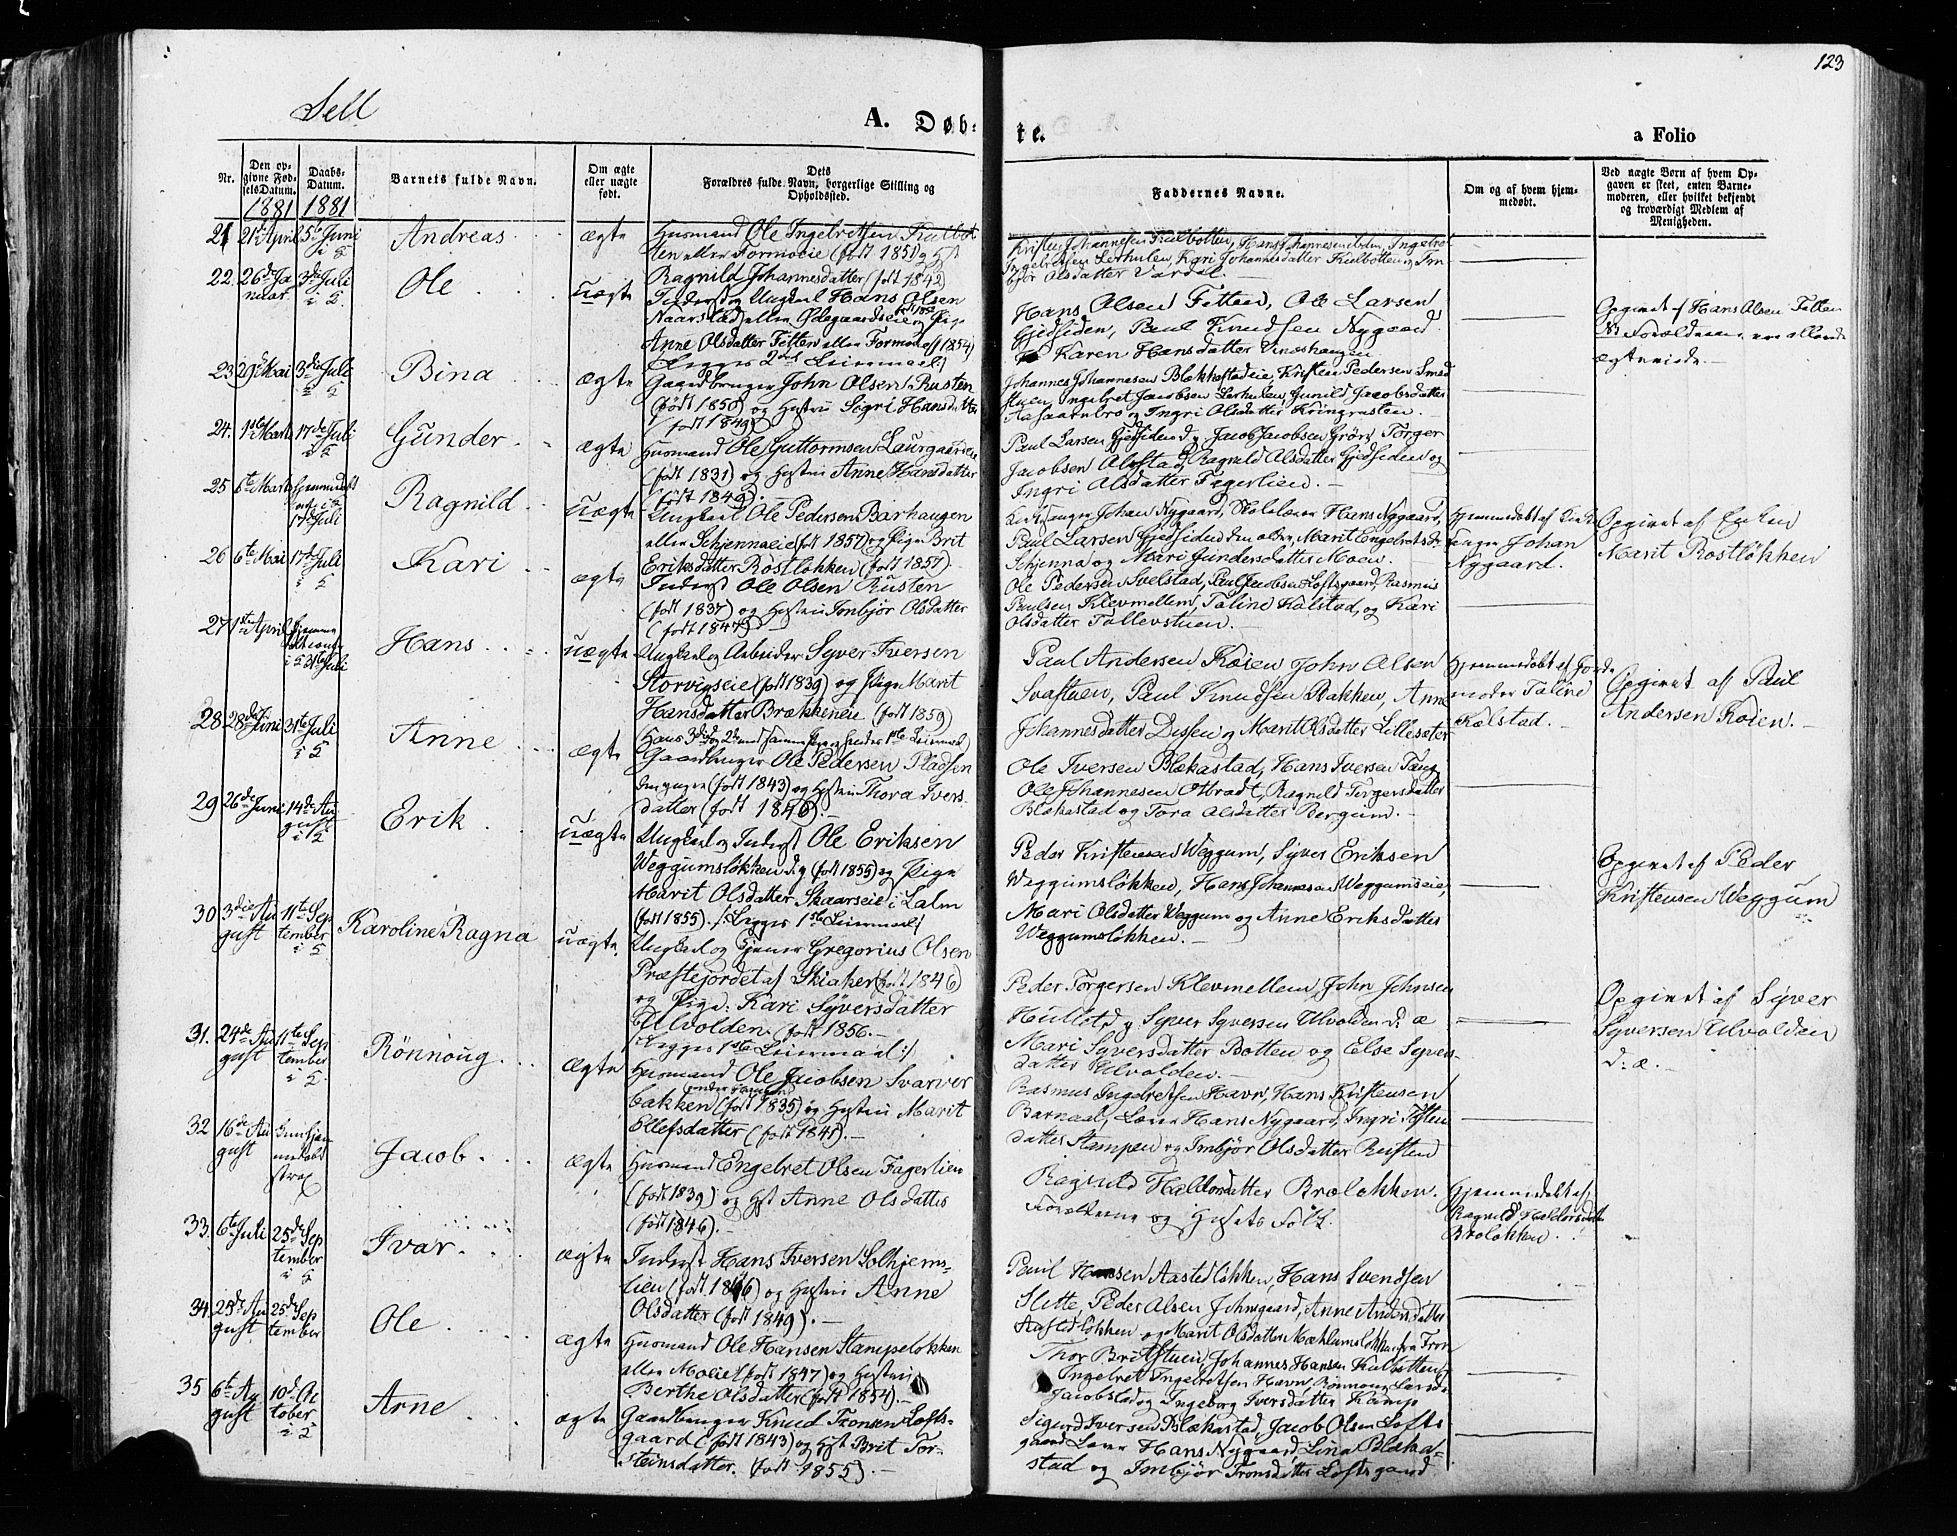 123
Sell
A. Døb-
te.
a Folio
Nr.
Den op-
givne Fød-
selsDatum.
1881
Daabs-
Datum.
1881
Barnets fulde Navn.
Om ægte
eller uægte
født.
Dets
Forældres fulde Navn, borgerlige Stilling og
Opholdssted.
Faddernes Navne.
Om og af hvem hjem-
medøbt.
Ved uægte Børn af hvem Op-
gaven er skeet, enten Barne-
moderen, eller hvilket bekjendt
og troværdigt Medlem af
Menigheden.
21 21 April 5te Juni
Andreas
ægte
Husmand Ole Ingebretsen Kulbot
ten eller Formoeie (født 1851) og Hst
Ragnild Johannesdatter (født 1842)
Kristen Johannesen Kulbotten, Hans Johannesen ibdm, Ingebret
Ingebretsen Lerhulen, Kari Johannesdatter Kulbotten og Im
bjør Olsdatter Vardal.
22. 26de Ja
nuar. 3die Juli
Ole
uægte
Inderst og Ungkarl Hans Olsen
Naarstad eller Ødegaardseie og Pige
Anne Olsdatter Fetten eller Formo (f 1854)
(Begges 2det Leiermaal)
Hans Olsen Fetten, Ole Larsen
Gjedsiden, Paul Knudsen Nygaard
Karen Hansdatter Vinoshaugen
Opgivet af Hans Olsen Fetten
Forældrene ere allerede
ægteviede.
23 29de Mai 3die Juli
Bina
ægte
Gaardbruger John Olsen Rusten
(født 1850) og Hustru Sigri Hansdatter
(født 1849)
Johannes Johannesen Blekkastadeie, Kristen Pedersen Smed
stuen, Ingebret Jacobsen Lerhulen, Gunild Jacobsdatter
Aasaarenbro og Ingri Olsdatter Kringrusten.
24. 1ste Marts 17de Juli
Gunder
ægte
Husmand Ole Guttormsen Laurgaardeie
(født 1831) og Hustru Anne Hansdatter
(født 1842).
Paul Larsen Gjedsiden d y Jacob Jacobsen Grøn, Torger
Jacobsen Ulvstad, Ragnild Olsdatter Gjedsiden og
Ingri Olsdatter Fagerlien.
25 6te Marts Hjemmedøbt
17de Juli
Ragnild
uægte
Ungkarl Ole Pedersen Barhaugen
eller Schjennaeie (født 1857) og Pige Brit
Eriksdatter Rostløkken (født 1857).
Kirkesanger Johan Nygaard, Skolelærer Hans Nygaard,
Paul Larsen Gjedsiden den ældre, Marit Engebretsdr
Schjenna og Mari Gundersdatter Moen.
Hjemmedøbt af Kirke
sanger Johan
Nygaard.
Opgivet af Enken
Marit Rostløkken
26 6te Mai 17de Juli
Kari
ægte
Inderst Ole Olsen Rusten
(født 1837) og Hustru Imbjør Olsdatter
(født 1847).
Ole Pedersen Selstad, Paul Jacobsen Loftsgaard, Rasmus
Paulsen Klevmellem, Taline Kalstad, og Kari
Olsdatter Tollevstuen.
27 1ste April Hjemme
i S 31te Juli
Hans
uægte
Ungkarl og Arbeider Syver Iversen
Storvigseie (født 1839) og Pige Marit
Hansdatter Brækkeneie (født 1859)
Paul Andersen Koien, John Olsen
Svastuen, Paul Knudsen Bakken, Anne
Johannesdatter Dissen og Marit Olsdatter Lillesæter
Hjemmedøbt af Jorde
moder Taline
Kalstad.
Opgivet af Paul
Andersen Koien.
28 28de Juni 31te Juli
Anne
ægte
Gaardbruger Ole Pedersen Pladsen
(født 1843) og Hustru Thora Ivers-
datter (født 1846).
Ole Iversen Blekastad, Hans Iversen Taug
Ole Johannesen Otbradt, Ragnild Torgersdatter
Blekastad og Tora Olsdatter Bergum.
29 26de Juni 14de Au
gust
Erik
uægte
Ungkarl og Inderst Ole Eriksen
Weggumsløkken d y (født 1855) og Pige
Marit Olsdatter Skaarseie i Lalm
(født 1855). (Begges 1ste Leiermaal)
Peder Kristensen Weggum, Syver Eriksen
Weggumsløkken, Hans Johannesen Weggumseie,
Mari Olsdatter Weggum og Anne Eriksdatter
Weggumsløkken.
Opgivet af Peder
Kristensen Weggum
30 3die Au
gust 11te Sep
tember
Karoline Ragna
uægte
Ungkarl og Tjener Gregorius Olsen
Præstejordet af Skiaker (født 1846)
og Pige. Kari Syversdatter
Ulvolden (født 1856.
(Begges 1ste Leiermaal)
Peder Torgersen Klevmellem, John Johnsen
Hullet d y Syver Syversen Ulvolden d. æ
Mari Syversdatter Botten og Else Syvers-
datter Ulvolden.
Opgivet af Syver
Syversen Ulvolden
d. æ.
31. 24de Au
gust 11te Sep
tember
Rønnoug
ægte
Husmand Ole Jacobsen Svarver
bakken (født 1835) og Hustru Marit
Ellefsdatter (født 1841).
Rasmus Ingebretsen Havn, Hans Kristensen
Barnaal, Lærer Hans Nygaard, Ingri Iversen
datter Stampen og Imbjør Olsdatter Rusten
32 16de Au
gust
Jacob
ægte
Husmand Engebret Olsen Fagerlien
(født 1839) og Hst Anne Olsdatter
(født 1846).
Ragnild Haldorsdatter Broløkken.
Forældrene og Husets Folk.
Hjemmedøbt af
Ragnild Haldorsdatter
Broløkken.
33. 6te Juli 25de Sep
tember
Ivar
ægte
Inderst Hans Iversen Solhjems-
lien (født 1846) og Hustru Anne
Olsdatter (født 1849).
Paul Hansen Aastedløkken, Hans Svendsen
Slette, Peder Olsen Johnsgaard, Anne Andersdatter
Aastedløkken og Marit Olsdatter Mæhlumsløkken fra Fron
34. 25de Au
gust 25de Sep
tember
Ole
ægte
Husmand Ole Hansen Stampeløkken
eller Moeie (født 1847) og Hustru
Berthe Olsdatter (født 1854).
Thor Britstuen, Johannes Hansen Kulbotten
Ingebret Ingebretsen Havn, Rønnoug Larsd
Jacobstad og Ingeborg Iversdatter Kamp
35 6te Au
gust 10de Oc
tober
Arne
ægte
Gaardbruger Knud Tronsen Lofts-
gaard (født 1843) og Hst Brit Tor-
steinsdatter. (født 1855).
Sigurd Iversen Blekastad, Jacob Olsen Lofts
gaard Lærer Hans Nygaard, Lina Bleka-
stad og Imbjør Tronsdatter Loftsgaard